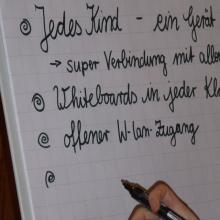 Jedes Kind - ein Gerät
→ super Verbindung mit aller
Whiteboards in jeder Kl
offener W-lan-Zugang